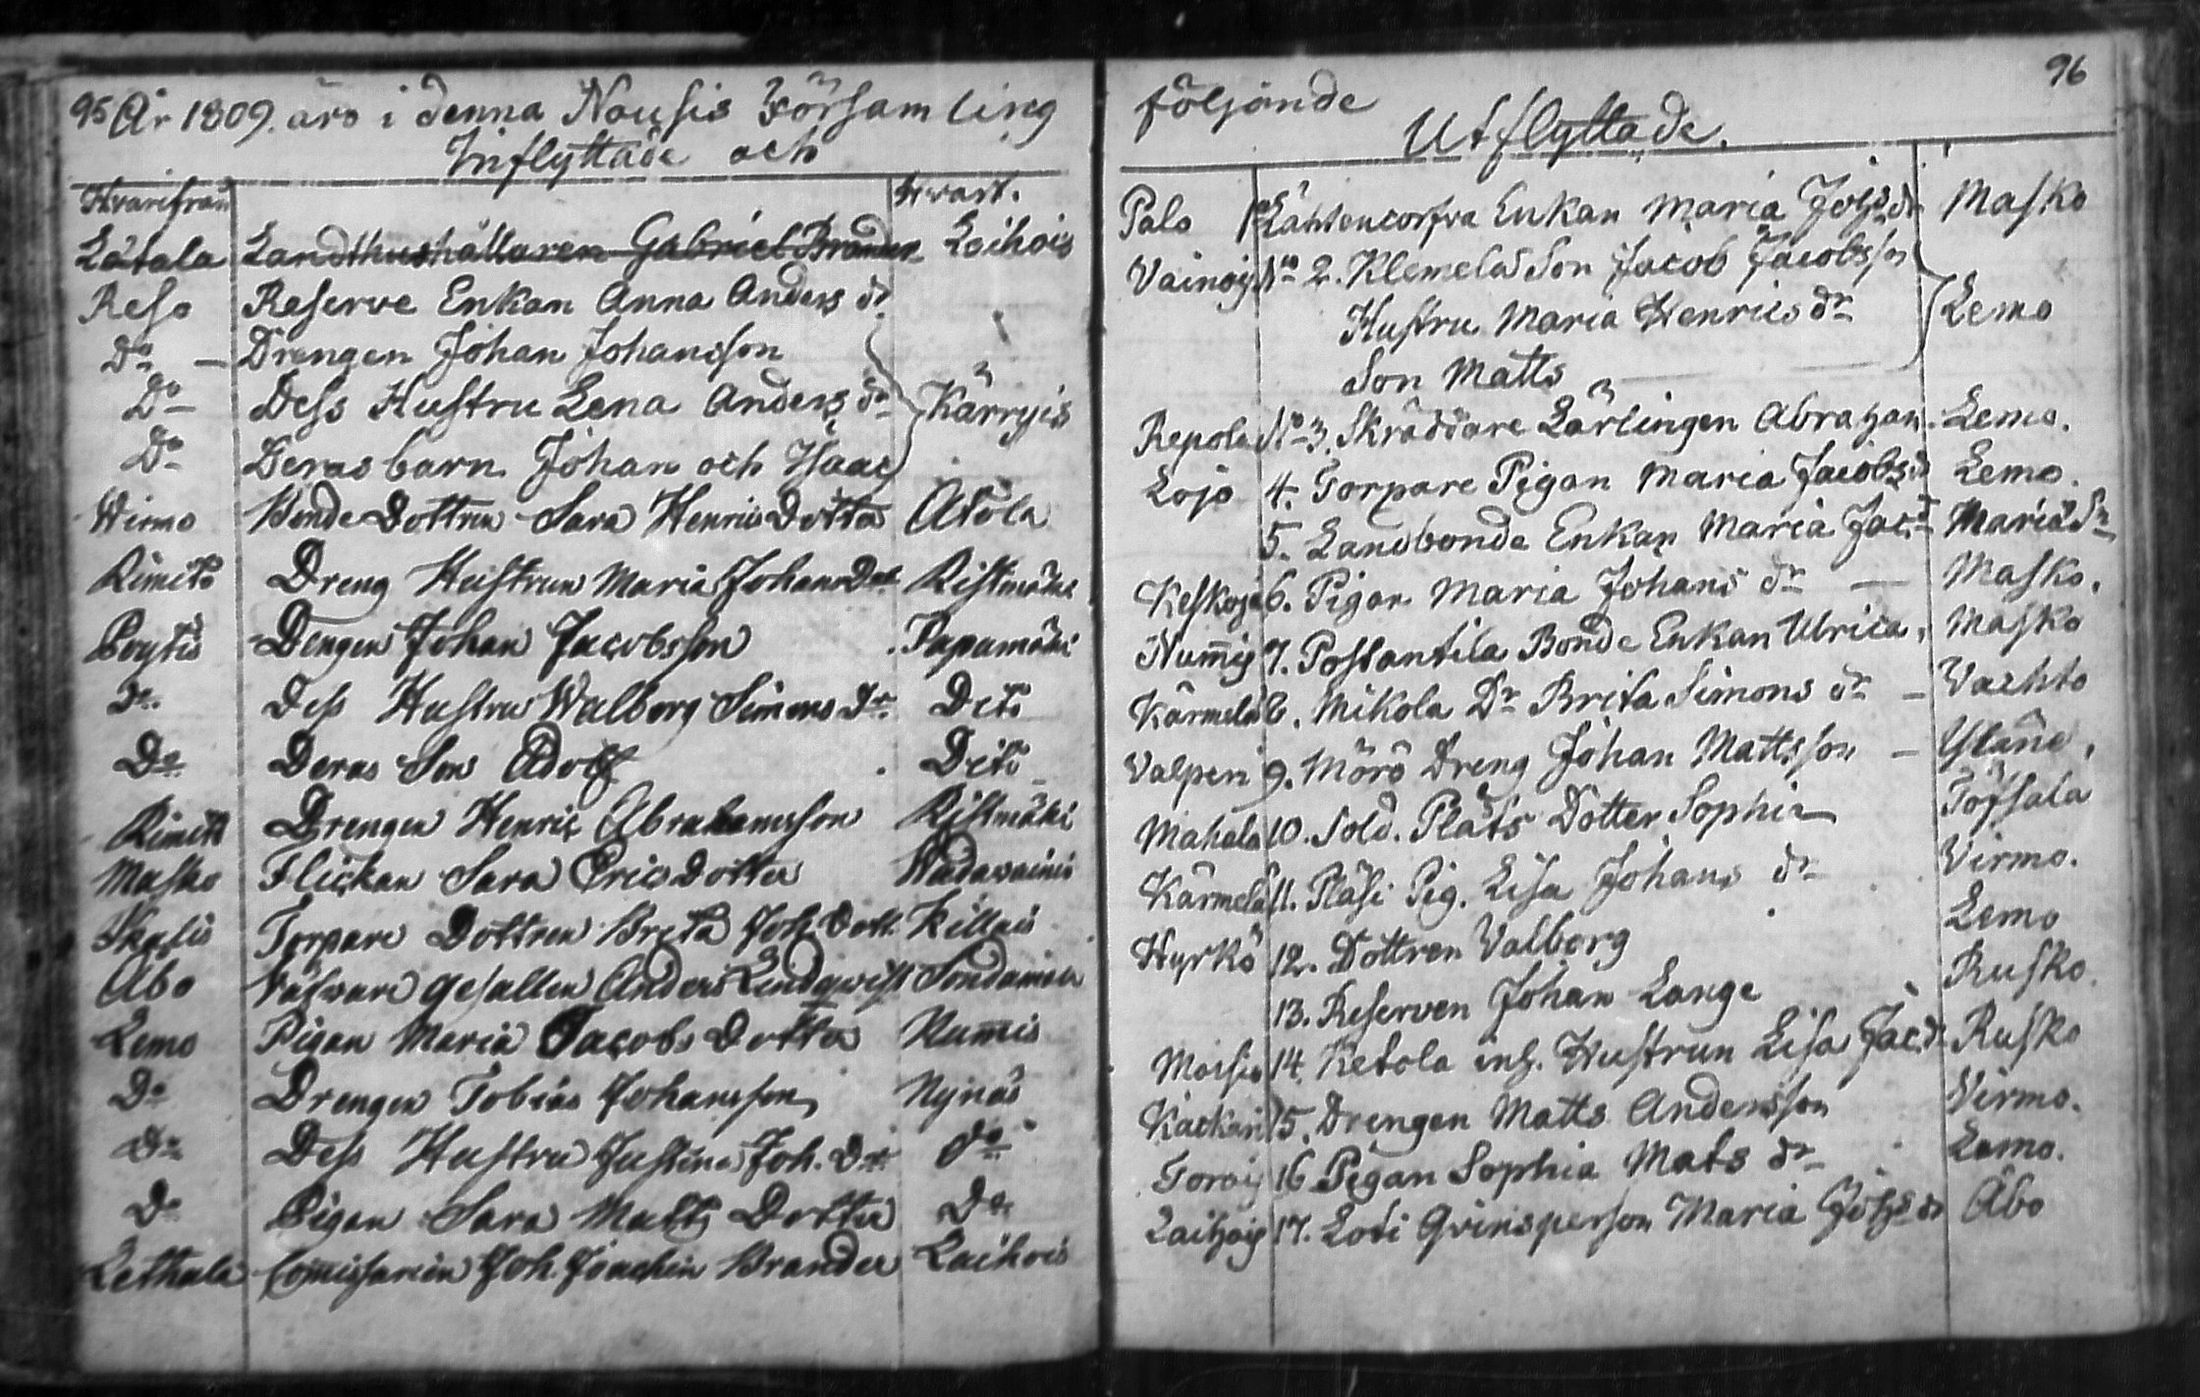 95 År 1809. äro i denna Nousis Församling
Inflyttade och
Hvarifrån Hvart.
Lätala Landthushållaren Gabriel Brander Loihois
Reso Reserve Enkan Anna Anders dr
Do — Drengen Johan Johansson
Do — Dess Hustru Lena Anders dr Kärryis
Do Deras barn Johan och Isaac
Wirmo Bonde Dottren Sara Henrics Dotter Atola
Rimito Dreng Hustrun Maria Johans Dotr Ristmäki
Poytis Dengen Johan Jacobsson Papamäki
Do Dess Hustru Walborg Simons Dr. Dito
Do Deras Son Adolf Dito
Rimito Drengen Henric Abrahamsson Ristmäki
Masko Flickan Sara Erics Dotter
Torpare Dottren Brita Joh. Dott. Killais
Åbo gesällen Anders Lindqwist
Lemo Pigan Maria Jacobs Dotter Numis
Do Drengen Tobias Johansson Nynäs
Do Dess Hustru Justina Joh. Dr do
Do Pigan Sara Matts Dotter Do
Lethala Comissarien Joh. Joachim Brander Laihois
96
följande
Utflyttade.
Palo Enkan Maria Johs dr Masko
Vainois No 2. Klemelas Son Jacob Jacobsson
Hustru Maria Henrics dr Lemo
Son Matts
Repola No 3. Skräddare Lärlingen Abraham Lemo.
Lojo 4. Torpare Pigan Maria Jacobs dr Lemo.
5. Landbonde Enkan Maria Jac. dr Mariæ
Keskoja 6. Pigan Maria Johans dr — Masko.
Numis 7. Postantila Bonde Enkan Ulrica, Masko
Kärmelä 6. Mikola Dr Brita Simons dr — Vachto
Valperi 9. Mörö Dreng Johan Mattsson — Yläne,
Mahala 10. Sold. Pläts Dotter Sophia Töfsala
Kärmelä 11. Pläsi Pig. Lisa Johans dr Virmo.
Hyrkö 12. Dottren Valborg Lemo
13. Reserven Johan Lange Rusko.
Moisio 14. Ketola inh. Hustrun Lisa Jac. dr Rusko
Kackari 15. Drengen Matts Andersson Virmo.
Torois 16 Pigan Sophia Mats dr Lemo.
Laihois 17. Maria Johs dr Åbo